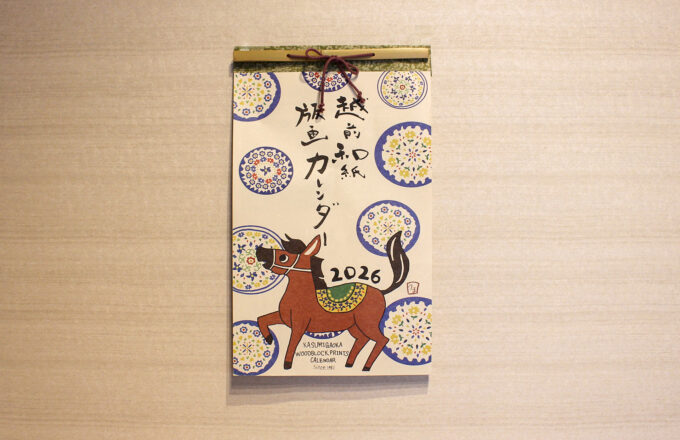 越前和紙
版画カレンダー
2026
KASUMIGAOKA
WOODBLOCK PRINTS
CALENDAR